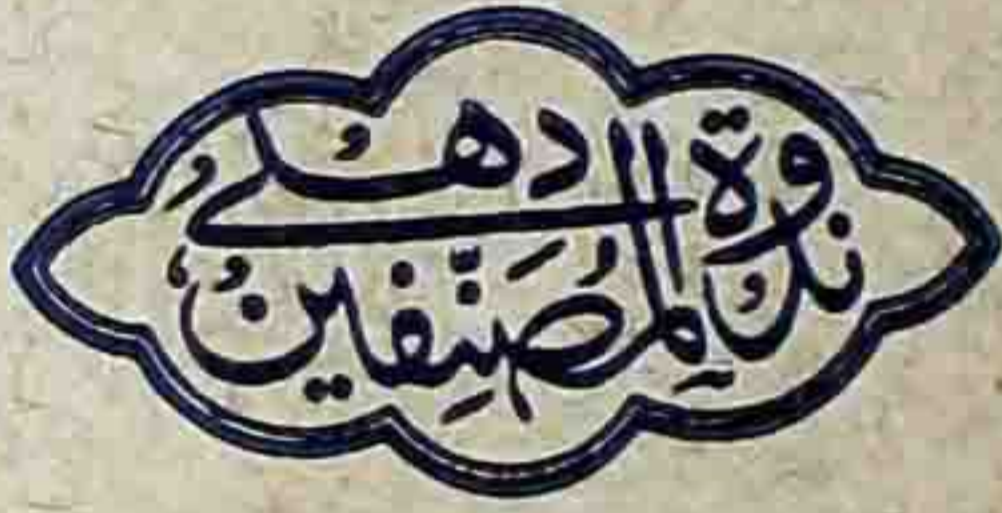 ندوۃ المصنفین دہلی